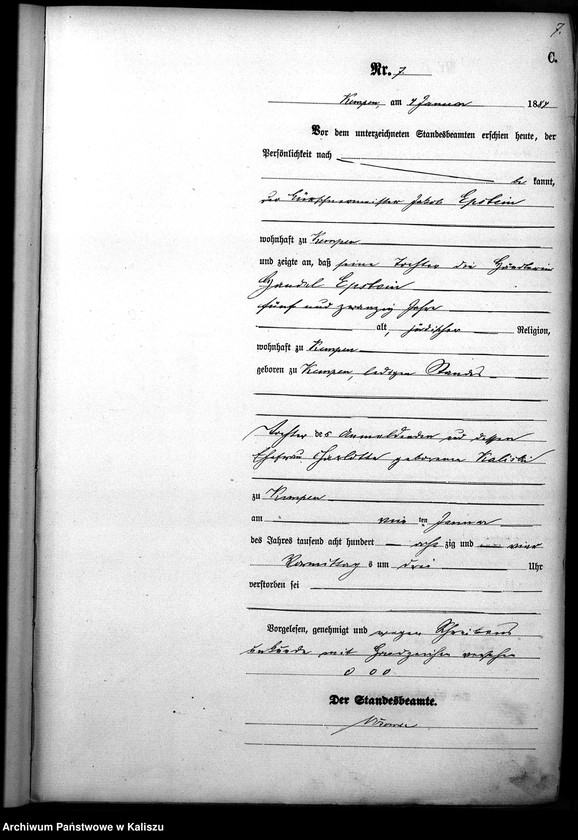 7.
C.
Nr. 7
Kempen, am 4 Januar 1884
Vor dem unterzeichneten Standesbeamten erschien heute, der
Persönlichkeit nach
be kannt,
der Kürschnermeister Jakob Epstein
wohnhaft zu Kempen
und zeigte an, daß seine Tochter die Händlerin
Handel Epstein
fünf und zwanzig Jahre
alt, jüdischer Religion,
wohnhaft zu Kempen
geboren zu Kempen, ledigen Standes
Tochter des Anmeldenden und dessen
Ehefrau Charlotte geborene Kaliski
zu Kempen
am ten Januar
des Jahres tausend acht hundert acht zig und vier
Vormittag s um drei Uhr
verstorben sei
Vorgelesen, genehmigt und wegen Schreibens
unkunde mit Handzeichen versehen
o o o
Der Standesbeamte.
Archiwum Państwowe w Kaliszu